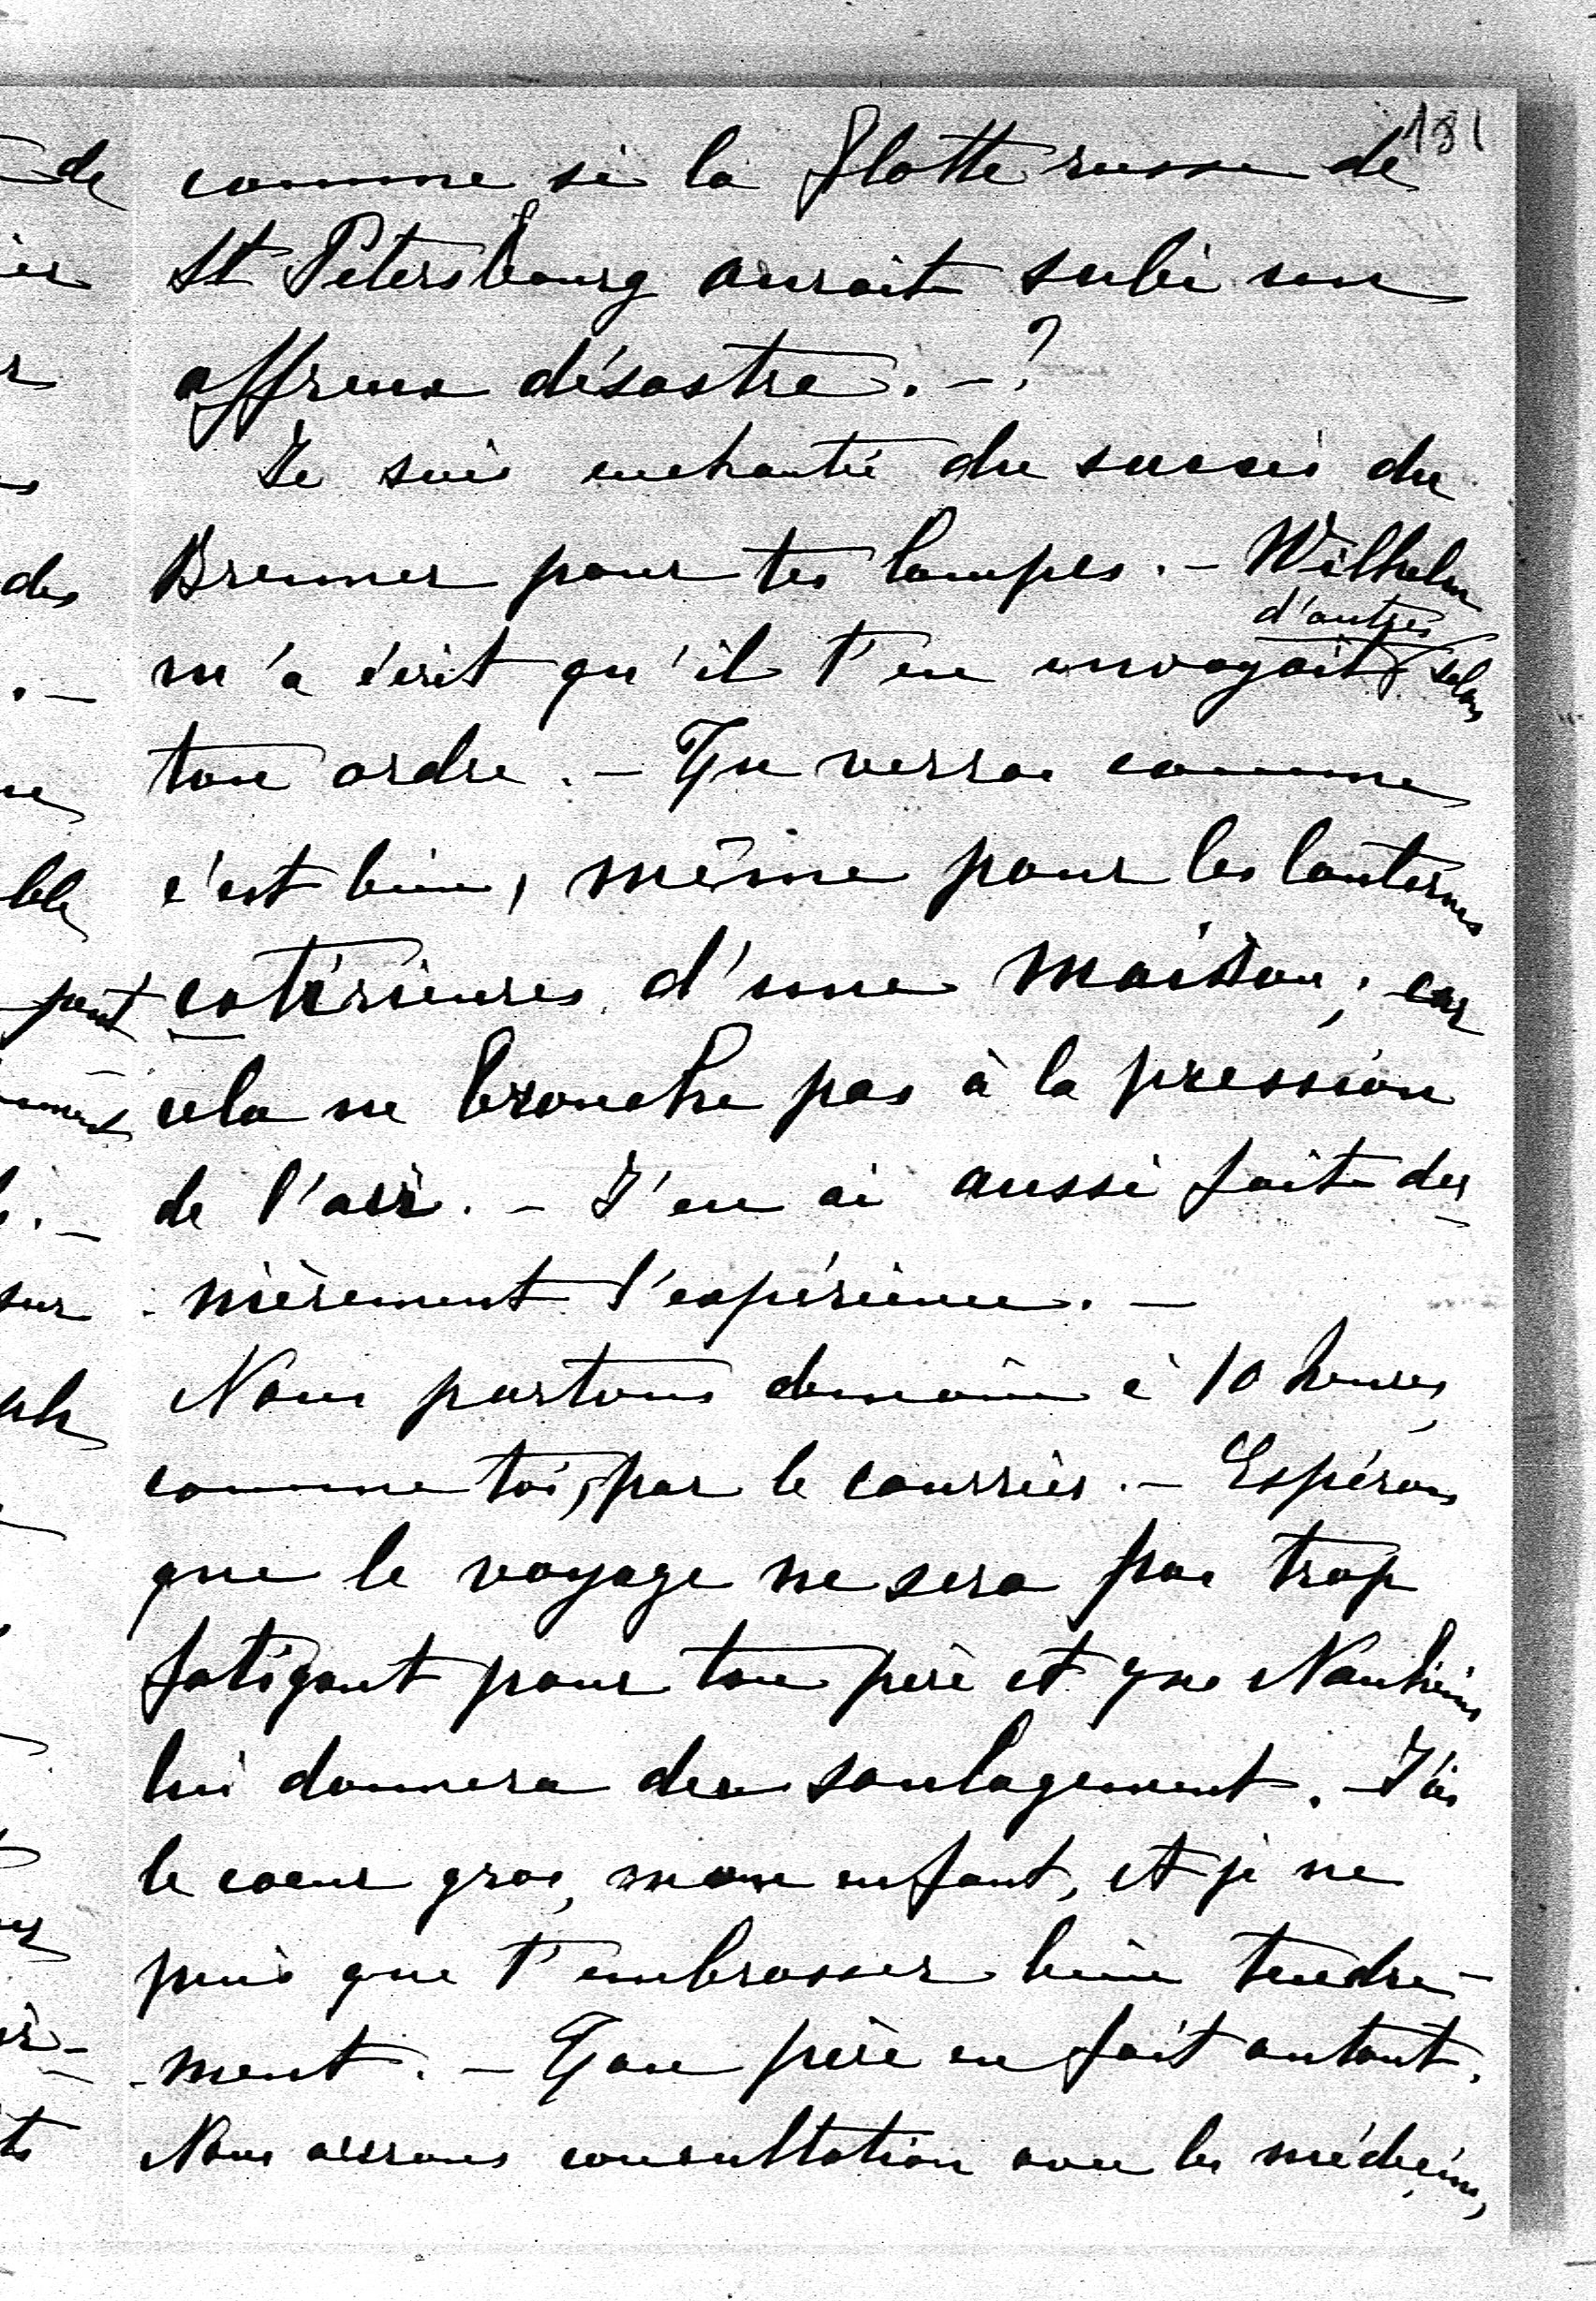 181
comme si la flotte russe de
St Petersbourg aurait subi un
affreux désastre. - ?
Je suis enchanté du succès du
Brenner pour tes lampes. - Wilhelm
d'autres
m'a écrit qu'il t'en envoyait selon
ton ordre. - Tu verras comme
c'est bien, même pour les lanternes
extérieures d'une maison; car
cela ne bronche pas à la pression
de l'air. - J'en ai aussi fait der-
nièrement l'expérience. -
Nous partons demain à 10 heures,
comme toi, par le courrier. - Espérons
que le voyage ne sera pas trop
fatigant pour ton père et que Nauheim
lui donnera du soulagement. - J'ai
le coeur gros, mon enfant, et je ne
puis que t'embrasser bien tendre-
-ment. - Ton père en fait autant.
Nous aurons consultation avec les médecins,